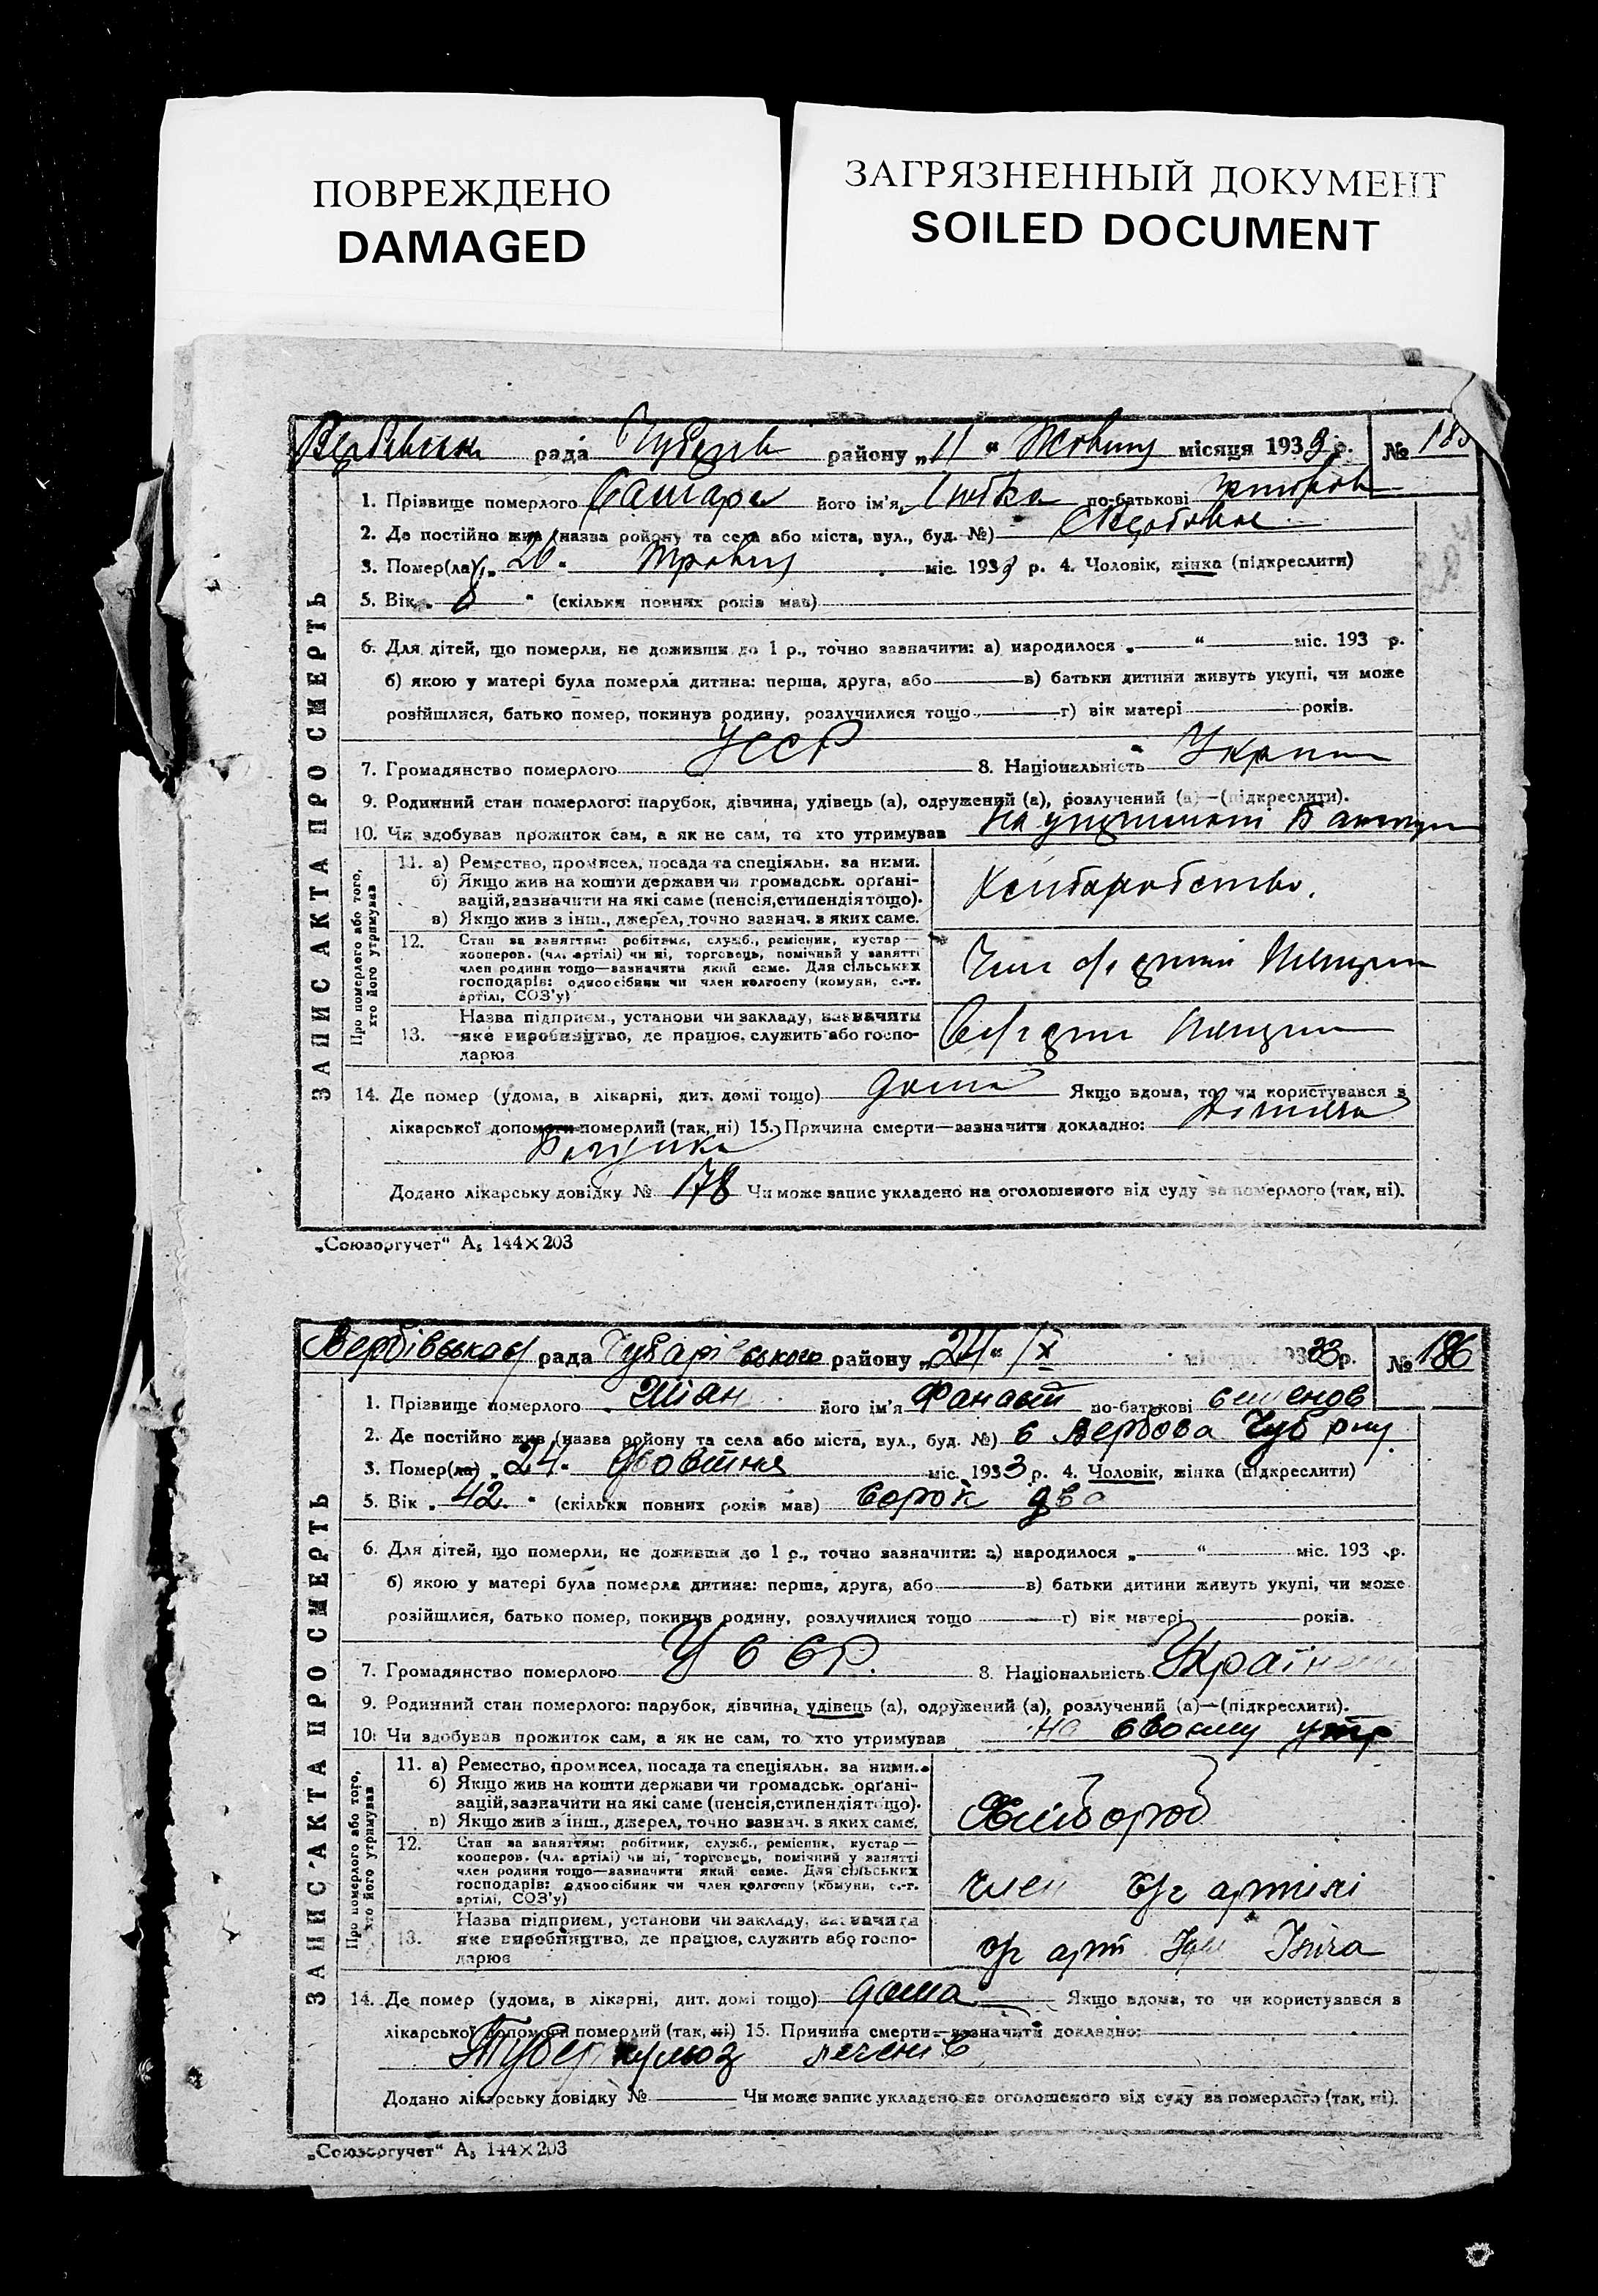 ПОВРЕЖДЕНО
DAMAGED
ЗАГРЯЗНЕННЫЙ ДОКУМЕНТ
SOILED DOCUMENT
рада району „11“ Жовтня місяця 1933 р. № 185
ЗАПИС АКТА ПРО СМЕРТЬ
1. Прізвище померлого його ім'я по-батькові
2. Де постійно жив (назва району та села або міста, вул., буд. №)
3. Помер(ла) „26. Травня міс. 1933 р. 4. Чоловік, жінка (підкреслити)
5. Вік „ “ (скільки повних років мав)
6. Для дітей, що померли, не доживши до 1 р., точно зазначити: а) народилося „ “ міс. 193 р.
б) якою у матері була померла дитина: перша, друга, або в) батьки дитини живуть укупі, чи може
розійшлися, батько помер, покинув родину, розлучилися тощо г) вік матері років.
7. Громадянство померлого УССР 8. Національність Україн
9. Родинний стан померлого: парубок, дівчина, удівець (а), одружений (а), розлучений (а)—(підкреслити).
10. Чи здобував прожиток сам, а як не сам, то хто утримував На
Про померлого або того, хто його утримував
11. а) Ремество, промисел, посада та спеціяльн. за ними.
б) Якщо жив на кошти держави чи громадськ. орґані-
зацій, зазначити на які саме (пенсія, стипендія тощо).
в) Якщо жив з інш., джерел, точно зазнач. з яких саме.
Хліборобство.
12. Стан за заняттям: робітник, служб., ремісник, кустар—
кооперов. (чл. артілі) чи ні, торговець, помічний у занятті
член родини тощо—зазначити який саме. Для сільських
господарів: одноосібник чи член колгоспу (комуни, с.-г.
артілі, СОЗ'у)
13. Назва підприєм., установи чи закладу, зазначити
яке виробництво, де працює, служить або госпо-
дарює
14. Де помер (удома, в лікарні, дит. домі тощо) дома Якщо вдома, то чи користувався з
лікарської допомоги померлий (так, ні) 15. Причина смерти—зазначити докладно:
Додано лікарську довідку № 178 Чи може запис укладено на оголошеного від суду за померлого (так, ні).
„Союзоргучет“ А₅ 144×203
Вербівської рада Чубарівського району „24“ ІХ місяця 1933 р. № 186
ЗАПИС АКТА ПРО СМЕРТЬ
1. Прізвище померлого його ім'я по-батькові
2. Де постійно жив (назва району та села або міста, вул., буд. №) с Вербова Чуб рну
3. Помер(ла) „24. міс. 1933 р. 4. Чоловік, жінка (підкреслити)
5. Вік „42“ (скільки повних років мав) сорок два
6. Для дітей, що померли, не доживши до 1 р., точно зазначити: а) народилося „ “ міс. 193 р.
б) якою у матері була померла дитина: перша, друга, або в) батьки дитини живуть укупі, чи може
розійшлися, батько помер, покинув родину, розлучилися тощо г) вік матері років.
7. Громадянство померлого УССР. 8. Національність Україн
9. Родинний стан померлого: парубок, дівчина, удівець (а), одружений (а), розлучений (а)—(підкреслити).
10. Чи здобував прожиток сам, а як не сам, то хто утримував на своєму утр
Про померлого або того, хто його утримував
11. а) Ремество, промисел, посада та спеціяльн. за ними.
б) Якщо жив на кошти держави чи громадськ. орґані-
зацій, зазначити на які саме (пенсія, стипендія тощо).
в) Якщо жив з інш., джерел, точно зазнач. з яких саме.
Хлібороб
12. Стан за заняттям: робітник, служб., ремісник, кустар—
кооперов. (чл. артілі) чи ні, торговець, помічний у занятті
член родини тощо—зазначити який саме. Для сільських
господарів: одноосібник чи член колгоспу (комуни, с.-г.
артілі, СОЗ'у)
член с/г артілі
13. Назва підприєм., установи чи закладу, зазначити
яке виробництво, де працює, служить або госпо-
дарює
с/г арт Ілліча
14. Де помер (удома, в лікарні, дит. домі тощо) дома Якщо вдома, то чи користувався з
лікарської допомоги померлий (так, ні) 15. Причина смерти—зазначити докладно:
Туберкульоз легенів
Додано лікарську довідку № Чи може запис укладено на оголошеного від суду за померлого (так, ні).
„Союзоргучет“ А₅ 144×203